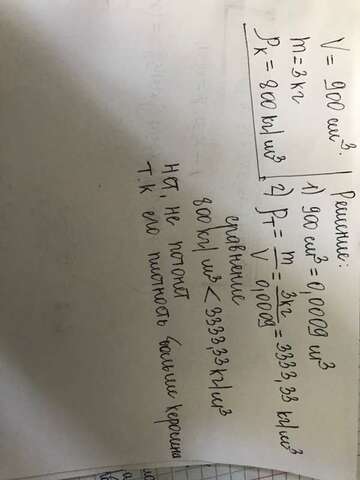 V = 900 см³.
m = 3 кг
ρк = 800 кг/м³
Решение:
1) 900 см³ = 0,0009 м³
2) ρт = m/V = 3кг/0,0009 = 3333,33 кг/м³
сравнение
800 кг/м³ < 3333,33 кг/м³
нет, не потонет
т.к его плотность больше керосина